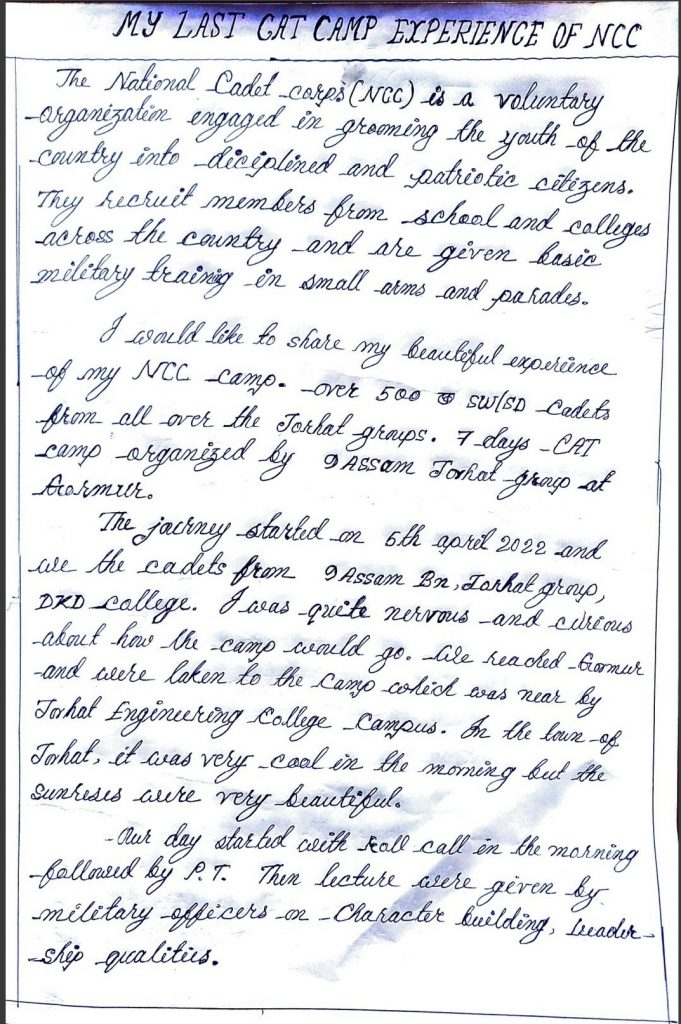 MY LAST CAT CAMP EXPERIENCE OF NCC
The National Cadet corps (NCC) is a voluntary
organization engaged in grooming the youth of the
country into diciplined and patriotic citizens.
They recruit members from school and colleges
across the country and are given basic
military traing in small arms and parades.
I would like to share my beautiful experience
of my NCC camp. over 500 SW/SD cadets
from all over the Jorhat groups. 7 days CAT
camp organized by 9 Assam Jorhat group at
Garmur.
The journey started on 6th april 2022 and
we the cadets from 9 Assam Bn, Jorhat group,
DKD college. I was quite nervous and curious
about how the camp would go. We reached Garmur
and were taken to the camp which was near by
Jorhat Engineering College Campus. In the town of
Jorhat, it was very cool in the morning but the
sunreses were very beautiful.
Our day started with roll call in the morning
followed by P.T. Then lecture were given by
military officers on Character building, Leader-
ship qualities.